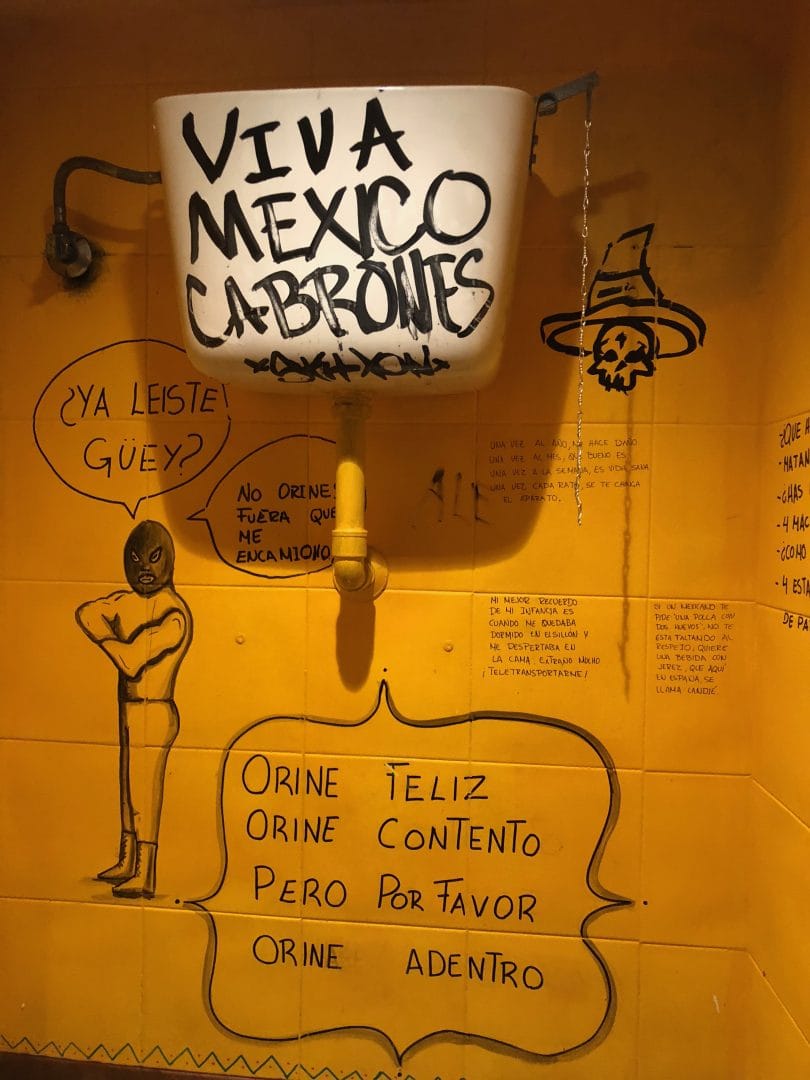 VIVA
MEXICO
CABRONES
¿YA LEISTE
GÜEY?
NO ORINES
FUERA QUE
ME
ENCAMIONO
ALE
UNA VEZ AL AÑO, NO HACE DAÑO
UNA VEZ AL MES, QUE BUENO ES
UNA VEZ A LA SEMANA, ES VIDA SANA
UNA VEZ CADA RATO, SE TE CANSA
EL APARATO.
MI MEJOR RECUERDO
DE MI INFANCIA ES
CUANDO ME QUEDABA
DORMIDO EN EL SILLÓN Y
ME DESPERTABA EN
LA CAMA. EXTRAÑO MUCHO
¡TELETRANSPORTARME!
SI UN MEXICANO TE
PIDE "UNA POLLA CON
DOS HUEVOS". NO TE
ESTA FALTANDO AL
RESPETO, QUIERE
UNA BEBIDA CON
JEREZ, QUE AQUÍ
EN ESPAÑA, SE
LLAMA CANDIÉ.
¿QUE
-MATAN
-¿HAS
- 4 MAC
-¿COMO
- 4 ESTA
DE PA
ORINE FELIZ
ORINE CONTENTO
PERO POR FAVOR
ORINE ADENTRO